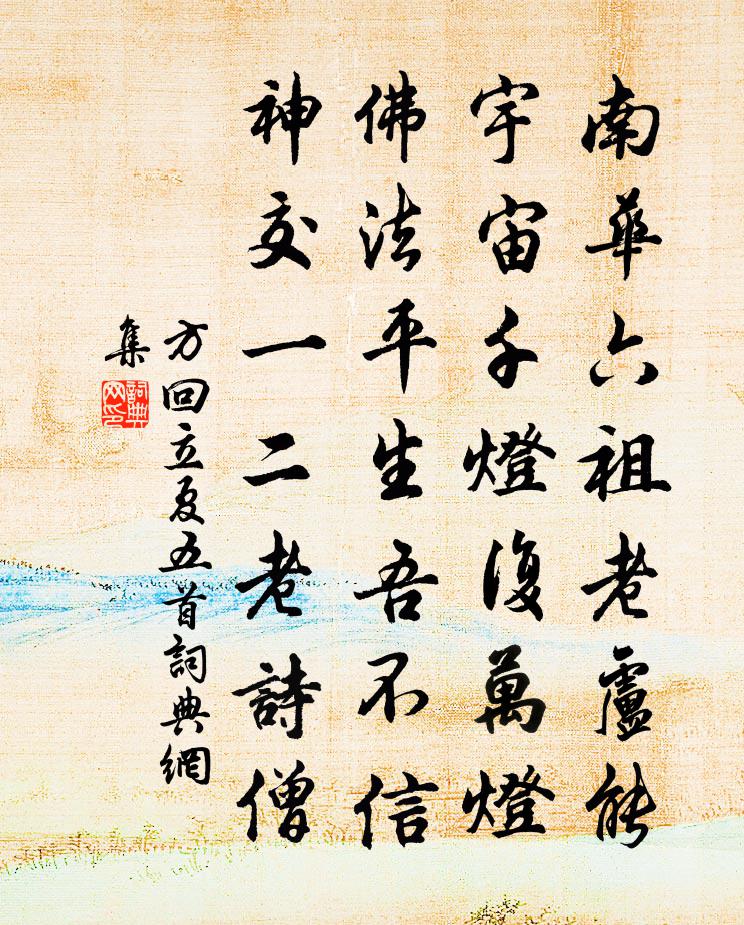 南華六祖老盧能
宇宙千燈復萬燈
佛法平生吾不信
神交一二老詩僧
方回立夏五首詞典網
集
詞典網印